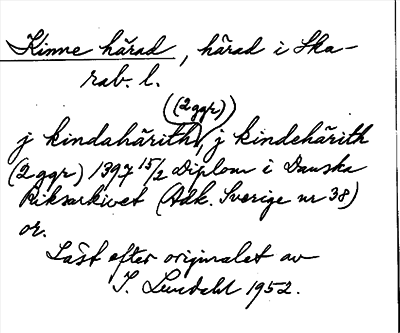 Kinne härad, härad i Ska-
rab. l.
(2 ggr)
j kindahärith, j kindehärith
(2 ggr) 1397 15/2 Diplom i Danska
Riksarkivet (Adk. Sverige nr 38)
or.
Läst efter originalet av
I. Lundahl 1952.